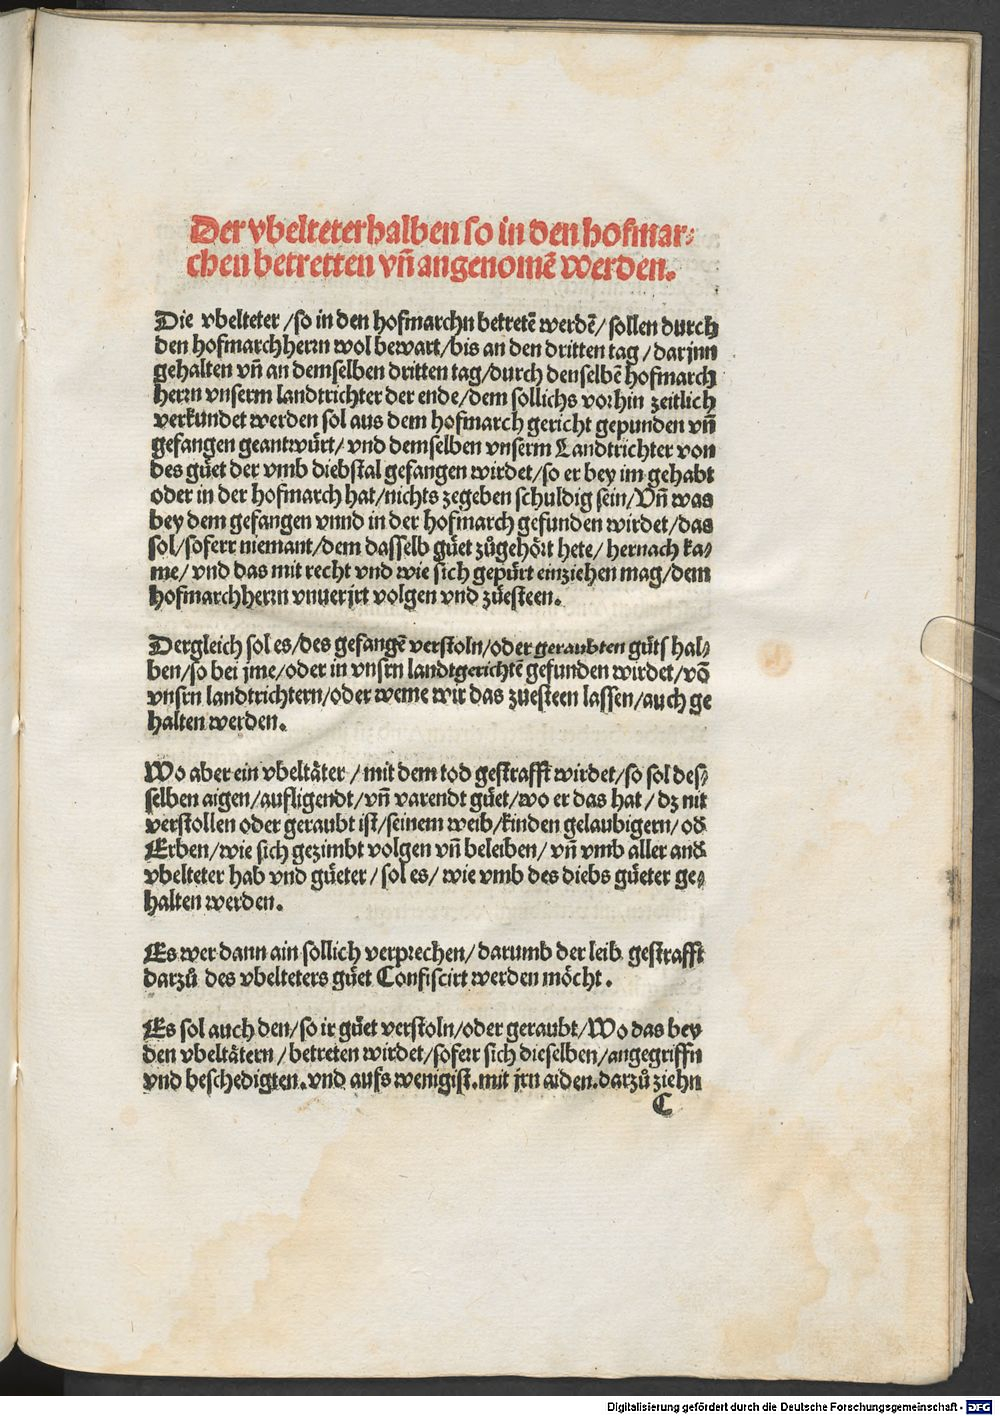 Der vbelteter halben so in den hofmar⸗
chen betretten vn̄ angenomē werden.
Die vbelteter /so in den hofmarchn betretē werdē/ sollen durch
den hofmarchherrn wol bewart/bis an den dritten tag / darjnn
gehalten vn̄ an demselben dritten tag/durch denselbē hofmarch
herrn vnserm landtrichter der ende/dem sollichs vorhin zeitlich
verkundet werden sol aus dem hofmarch gericht gepunden vn̄
gefangen geantwürt/ vnd demselben vnserm Landtrichter von
des guͤet der vmb diebstal gefangen wirdet/so er bey im gehabt
oder in der hofmarch hat/nichts zegeben schuldig sein/Vn̄ was
bey dem gefangen vnnd in der hofmarch gefunden wirdet/das
sol/soferr niemant/dem dasselb guͤet zůgehört hete/ hernach ka⸗
me/ vnd das mit recht vnd wie sich gepürt einziehen mag/dem
hofmarchherrn vnuerjrt volgen vnd zuͤesteen.
Dergleich sol es/des gefangē verstoln/oder geraubten guͤts hal⸗
ben/so bei jme/oder in vnsrn landtgerichtē gefunden wirdet/vō
vnsrn landtrichtern/oder weme wir das zuesteen lassen/auch ge
halten werden.
Wo aber ein vbeltäter / mit dem tod gestrafft wirdet/so sol des⸗
selben aigen/aufligendt/vn̄ varendt guͤet/wo er das hat / dz nit
verstollen oder geraubt ist/seinem weib/kinden gelaubigern/ od̕
Erben/wie sich gezimbt volgen vn̄ beleiben/ vn̄ vmb aller and̕
vbelteter hab vnd guͤeter/ sol es/ wie vmb des diebs guͤeter ge⸗
halten werden.
Es wer dann ain sollich verprechen/ darumb der leib gestrafft
darzů des vbelteters guͤet Confiscirt werden möcht.
Es sol auch den/so ir guͤet verstoln/oder geraubt/Wo das bey
den vbeltätern /betreten wirdet/soferr sich dieselben/angegriffn
vnd beschedigten.vnd aufs wenigist.mit jrn aiden.darzů ziehn
C
Digitalisierung gefördert durch die Deutsche Forschungsgemeinschaft - DFG